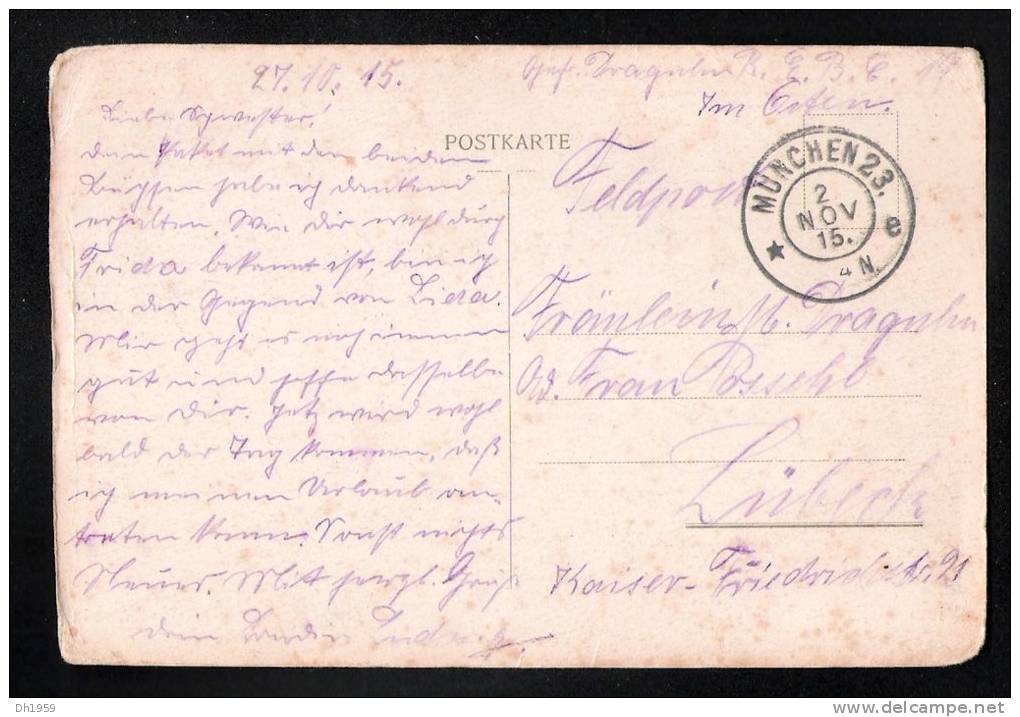 27.10.15.
Liebe Schwester!
dein Paket mit den beiden
Büchsen habe ich dankend
erhalten. Wie dir wohl durch
Frida bekannt ist, bin ich
in der Gegend von
Mir geht es noch immer
gut und hoffe dasselbe
von Dir. Jetz wird wohl
bald der Tag kommen, daß
ich meinen Urlaub an-
treten kann. Sonst nichts
Neues. Mitt herzl. Gruß
dein Bruder Ludwig.
Gefr. Dragulin R. E. B. E.
Im Osten.
POSTKARTE
Feldpost
MÜNCHEN 23.
2
NOV
15.
e
4 N.
Fräulein M. Dragulin
Ad. Frau Poschl
Lübeck
Kaiser-Friedrichstr. 21
DH1959
delcampe.net